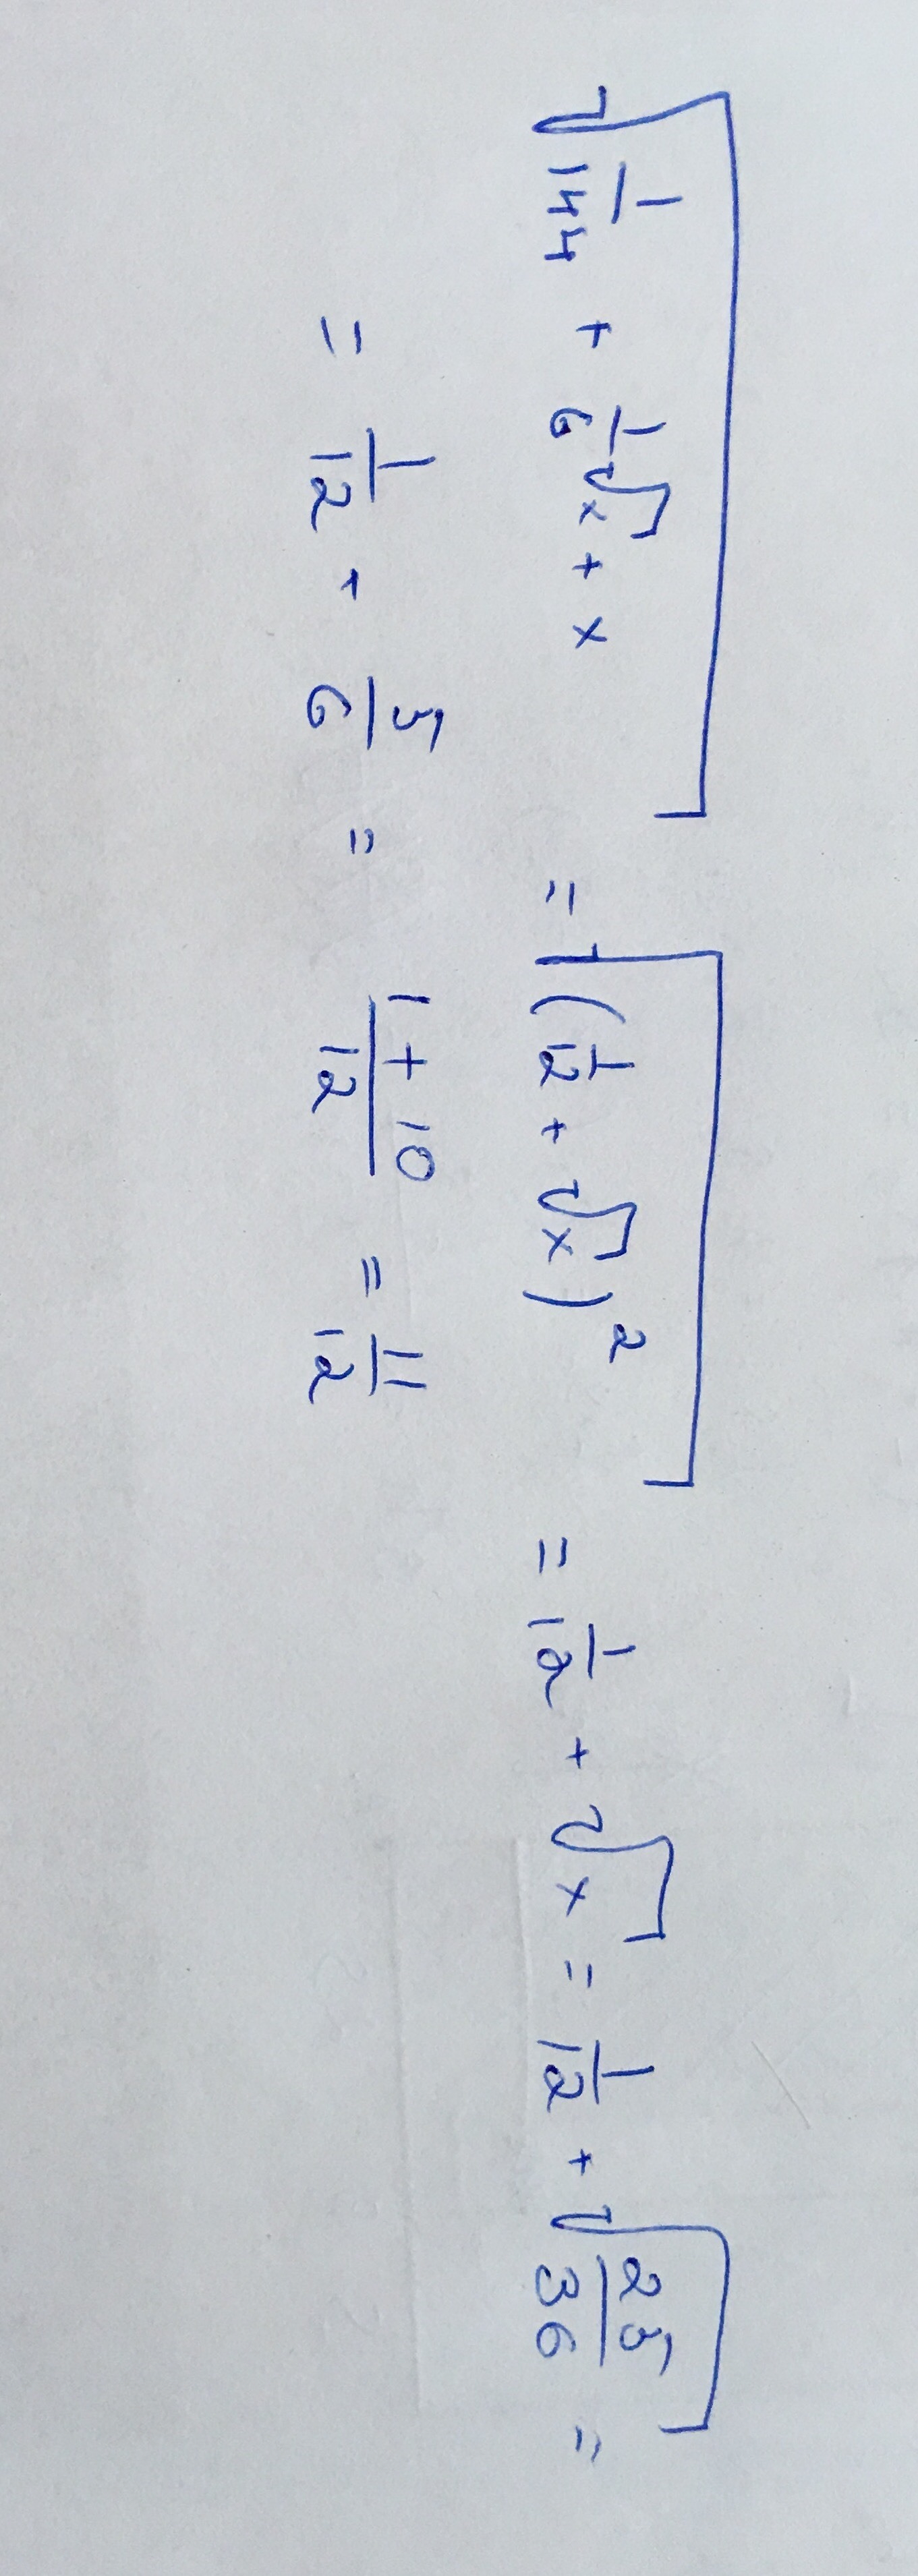 √(1/144 + 1/6 √x + x) = √((1/12 + √x)²) = 1/12 + √x = 1/12 + √(25/36) =
= 1/12 + 5/6 = (1 + 10)/12 = 11/12